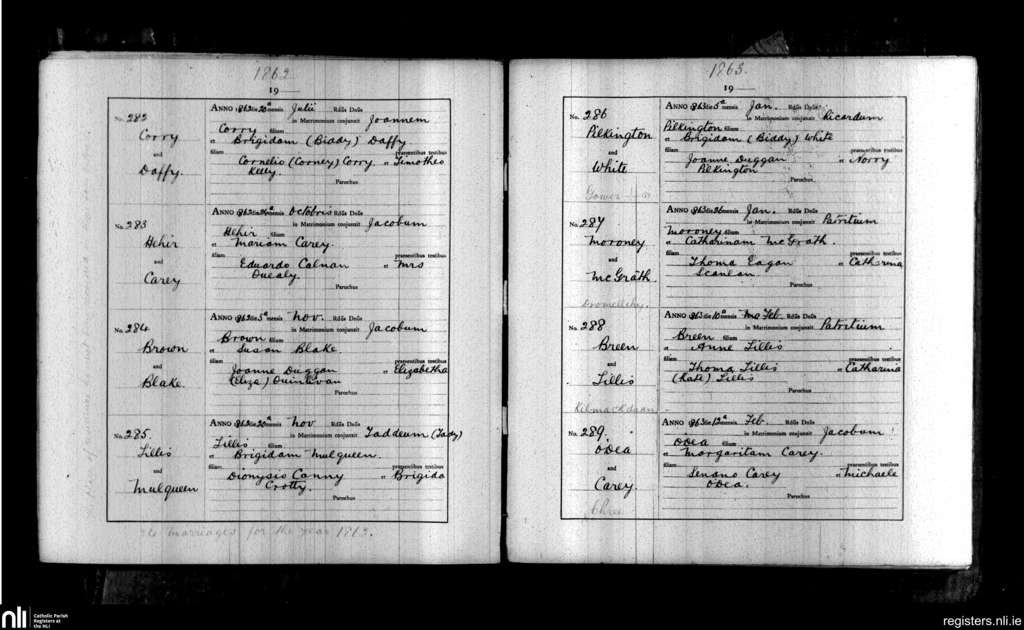 1862.
19
No. 282
Corry
and
Daffy.
ANNO 1862 die 20ª mensis Julii Rdūs Dnūs
in Matrimonium conjunxit Joannem
Corry filium
" Brigidam (Biddy) Daffy
filiam praesentibus testibus
Cornelio (Corney) Corry " Timotheo
Kelly.
Parochus
No. 283
Hehir
and
Carey
ANNO 1862 die mensis Octobris Rdūs Dnūs
in Matrimonium conjunxit Jacobum
Hehir filium
" Mariam Carey.
filiam praesentibus testibus
Eduardo Calnan " Mrs
Duealy.
Parochus
No. 284
Brown
and
Blake.
ANNO 1862 die 5ª mensis Nov. Rdūs Dnūs
in Matrimonium conjunxit Jacobum
Brown filium
" Susan Blake.
filiam praesentibus testibus
Joanne Duggan " Elizabetha
(Eliza) Quinlivan
Parochus
No. 285.
Lillis
and
Mulqueen
ANNO 1862 die 20ª mensis Nov Rdūs Dnūs
in Matrimonium conjunxit Taddeum (Tady)
Lillis filium
" Brigidam Mulqueen.
filiam praesentibus testibus
Dionysio Canny " Brigida
Crotty.
Parochus
marriages for the year 1863.
1863.
19
No. 286
Pilkington
and
White
Gower
ANNO 1863 die 5ª mensis Jan. Rdūs Dnūs
in Matrimonium conjunxit Ricardum
Pilkington filium
" Brigidam (Biddy) White
filiam praesentibus testibus
Joanne Duggan " Norry
Pilkington
Parochus
No. 287
Moroney
and
McGrath.
ANNO 1863 die 26 mensis Jan. Rdūs Dnūs
in Matrimonium conjunxit Patritium
Moroney filium
" Catharinam McGrath.
filiam praesentibus testibus
Thoma Eagan " Catharina
Scanlan.
Parochus
No. 288
Breen
and
Lillis
Kilmackduan
ANNO 1863 die 10ª mensis Feb. Rdūs Dnūs
in Matrimonium conjunxit Patritium
Breen filium
" Anne Lillis
filiam praesentibus testibus
Thoma Lillis " Catharina
(Kate) Lillis
Parochus
No. 289.
ODea
and
Carey.
ANNO 1863 die 12ª mensis Feb. Rdūs Dnūs
in Matrimonium conjunxit Jacobum
ODea filium
" Margaritam Carey.
filiam praesentibus testibus
Senano Carey " Michaele
ODea.
Parochus
nli Catholic Parish
Registers at
the NLI
registers.nli.ie